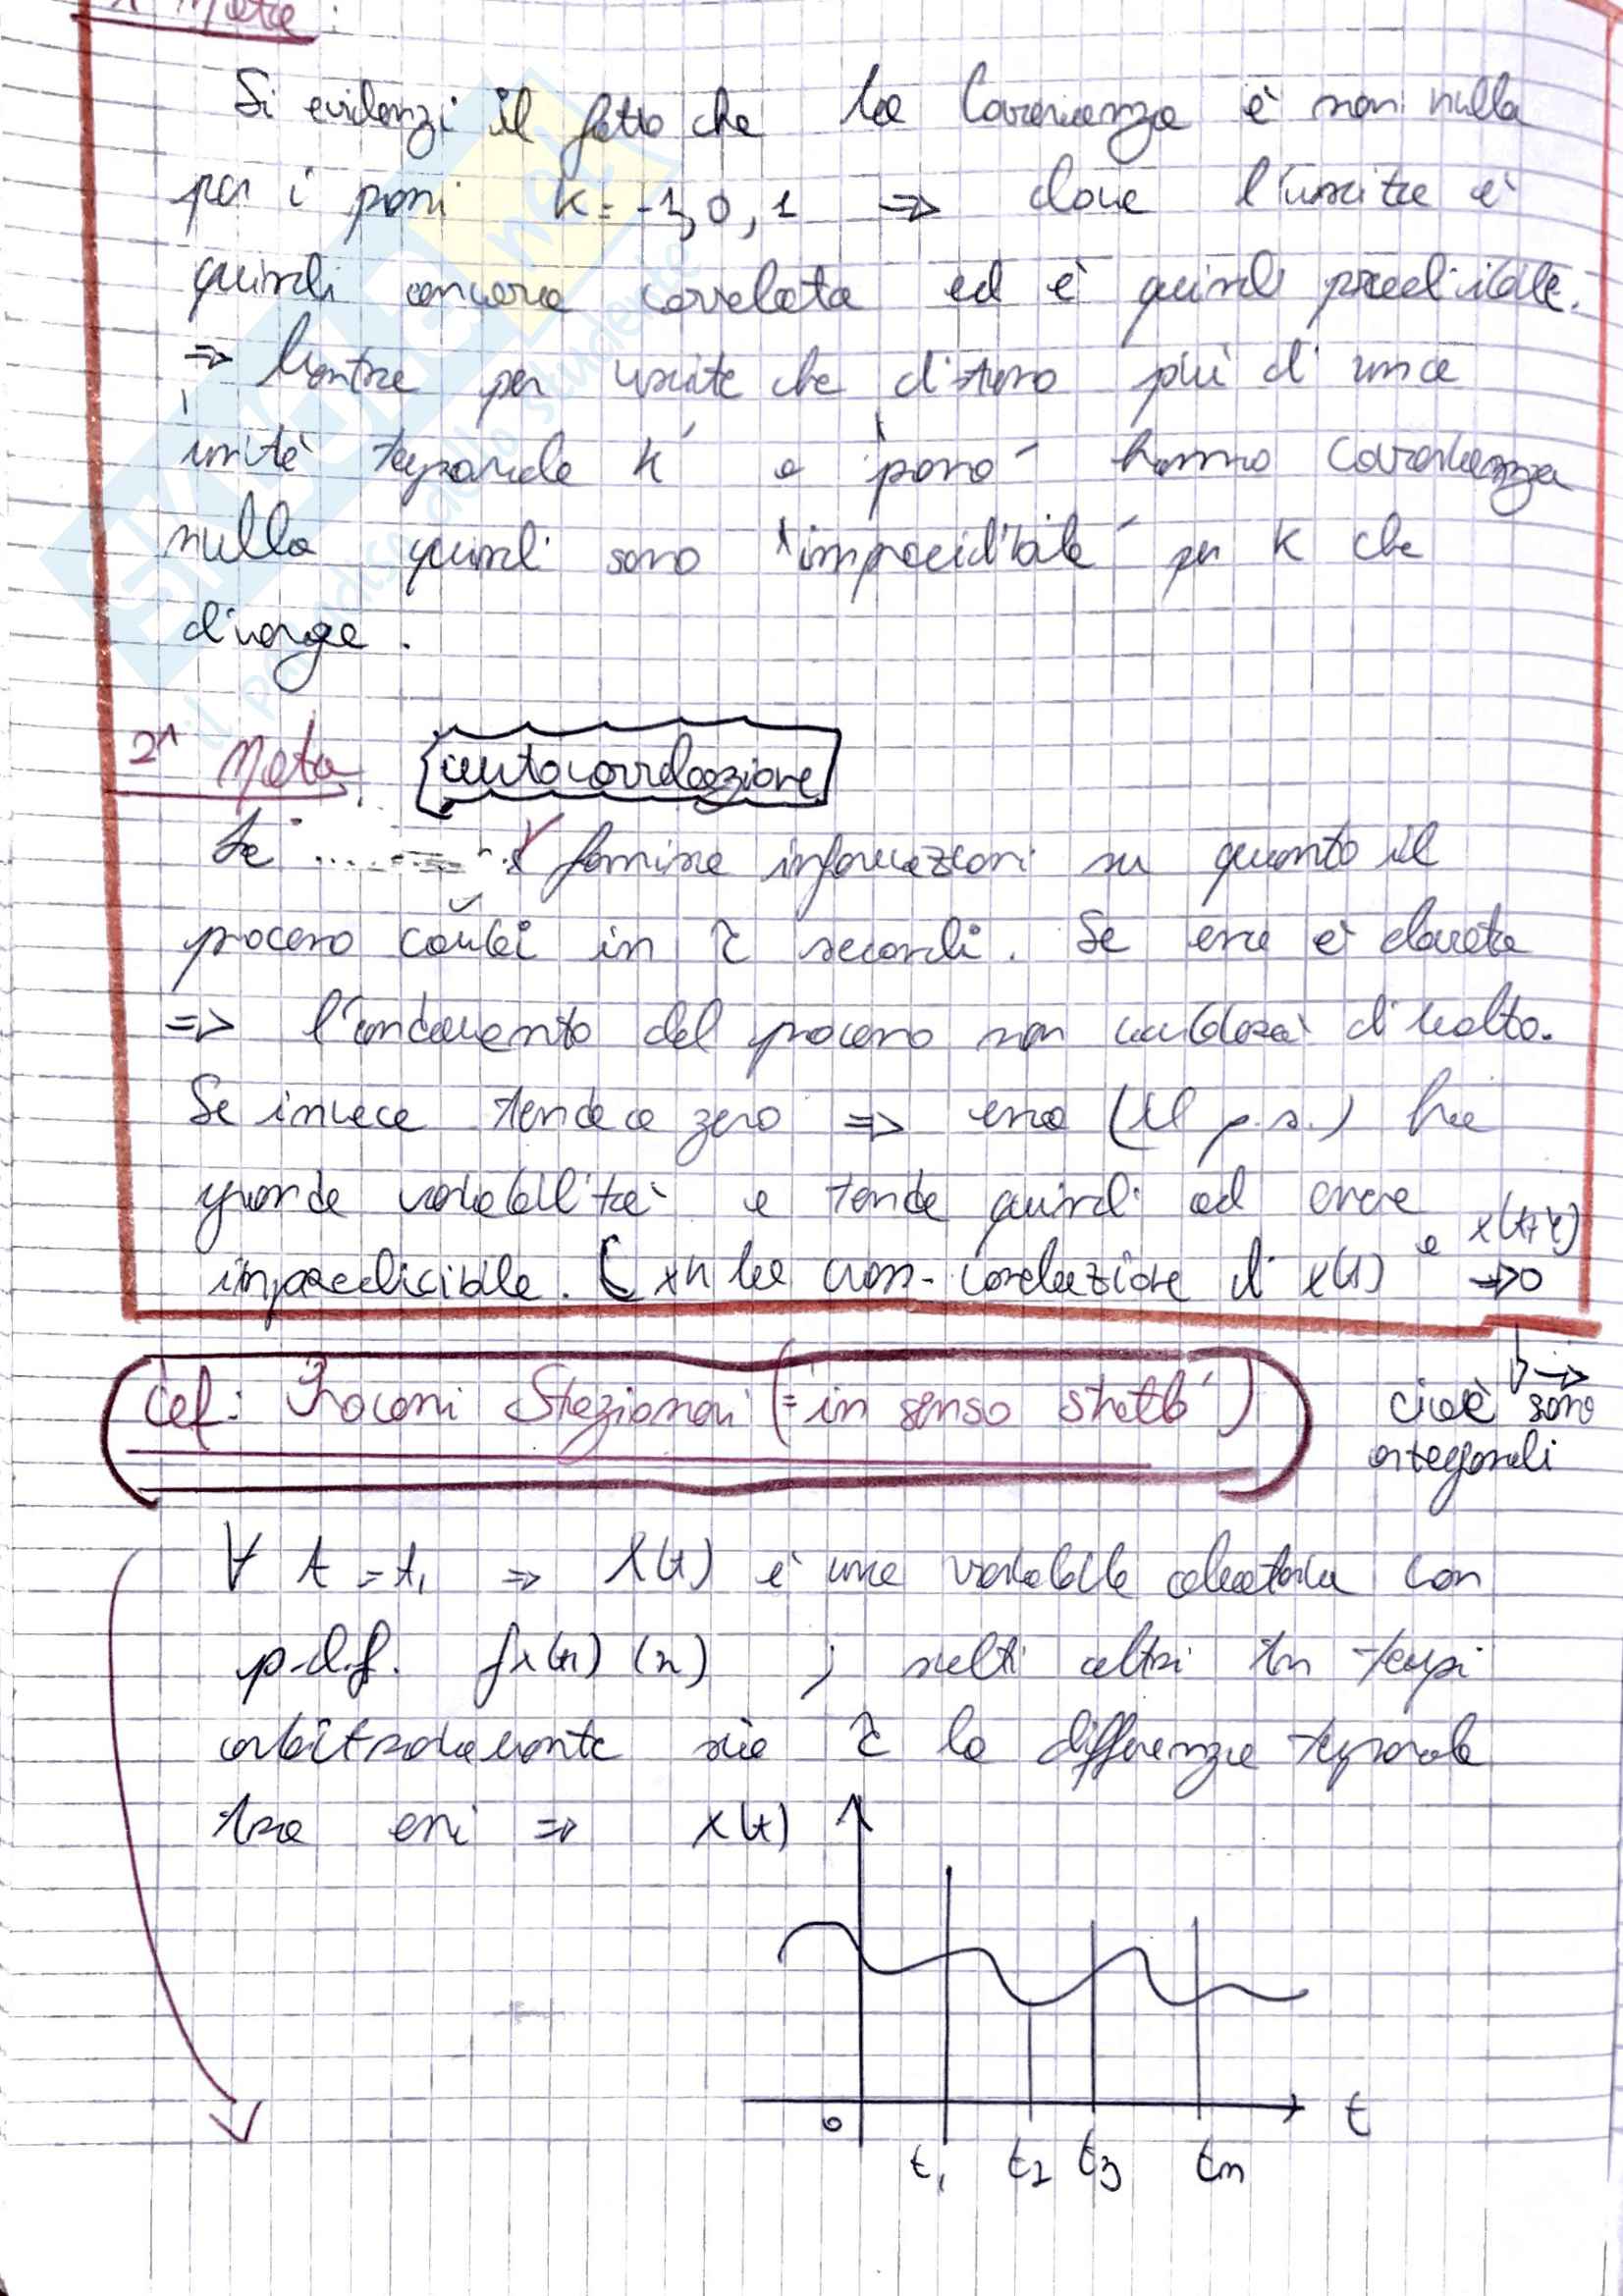 1^ Nota :
Si evidenzi il fatto che la Covarianza è non nulla
per i passi k = -1, 0, 1 => dove l'uscita è
quindi ancora correlata ed è quindi predicibile.
=> Mentre per uscite che distano più di una
unità temporale k o "passo" hanno covarianza
nulla quindi sono "impredicibile" per k che
diverge.
2^ Nota: autocorrelazione
La fornisce informazioni su quanto il
processo cambi in τ secondi. Se essa è elevata
=> l'andamento del processo non cambierà di molto.
Se invece tende a zero => esso (il p.s.) ha
grande variabilità e tende quindi ad essere
impredicibile. ( x n la cross-correlazione di x(t) e x(t+τ) →0
cioè sono
ortogonali
def: Processi Stazionari (= in senso stretto)
∀ t = t1 => X(t) è una variabile aleatoria con
p.d.f. fx(t1) (x) ; scelti altri tn tempi
arbitrariamente sia τ la differenza temporale
tra essi => x(t)
0 t1 t2 t3 tn t
SKUOLA.net
il paradiso dello studente